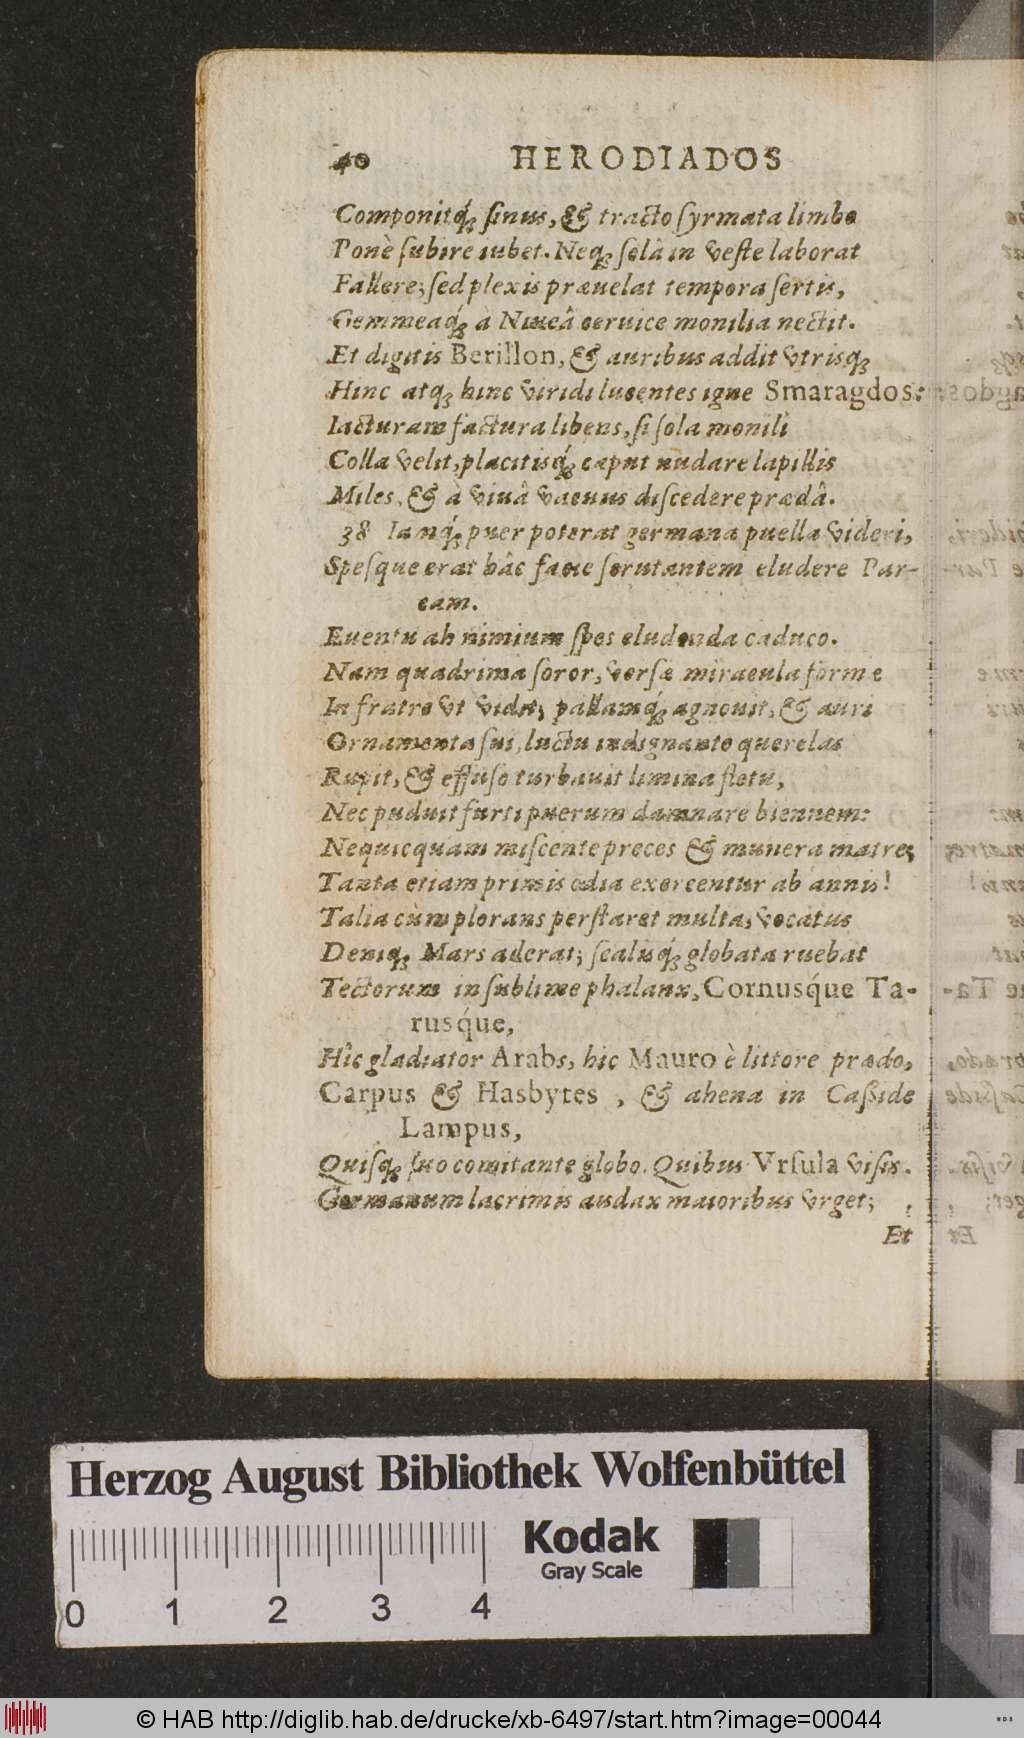 40 HERODIADOS
Componitq́; ſinus, & tracto ſyrmata limbo
Ponè ſubire iubet. Neq; ſolâ in veſte laborat
Fallere; ſed plexis præuelat tempora ſertis,
Gemmeaq́; a Niueâ ceruice monilia nectit.
Et digitis Berillon, & auribus addit vtrisq;
Hinc atq; hinc viridi lucentes igne Smaragdos:
Iacturam factura libens, ſi ſola monili
Colla velit, placitisq́; caput nudare lapillis
Miles, & à viuâ vacuus diſcedere prædâ.
38 Iamq́; puer poterat germana puella videri,
Speſque erat hâc facie ſcrutantem eludere Par-
cam.
Euentu ah nimium ſpes eludenda caduco.
Nam quadrima ſoror, verſæ miracula formæ
In fratre vt vidit; pallamq́; agnouit, & auri
Ornamenta ſui, luctu indignante querelas
Rupit, & effuſo turbauit limina fletu,
Nec puduit furti puerum damnare biennem:
Nequicquam miſcente preces & munera matre;
Tanta etiam primis odia exercentur ab annis!
Talia cùm plorans perſtaret multa, vocatus
Deniq; Mars aderat; ſcalisq́; globata ruebat
Tectorum in ſublime phalanx, Cornusq́ue Ta-
rusq́ue,
Hîc gladiator Arabs, hic Mauro è littore prædo,
Carpus & Hasbytes , & ahena in Caßide
Lampus,
Quiſq; ſuo comitante globo. Quibus Vrſula viſis.
Germanum lacrimis audax maioribus vrget;
Et
Herzog August Bibliothek Wolfenbüttel
Kodak
Gray Scale
0 1 2 3 4
© HAB http://diglib.hab.de/drucke/xb-6497/start.htm?image=00044